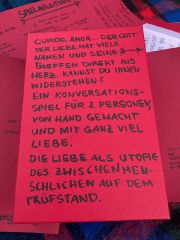 SPIELANLEITUNG
CUPIDO, AMOR... DER GOTT
DER LIEBE HAT VIELE
NAMEN UND SEINE
TREFFEN DIREKT INS
HERZ. KANNST DU IHNEN
WIDERSTEHEN?
EIN KONVERSATIONS-
SPIEL FÜR 2 PERSONEN,
VON HAND GEMACHT
UND MIT GANZ VIEL
LIEBE.
DIE LIEBE ALS UTOPIE
DES ZWISCHENMEN-
SCHLICHEN AUF DEM
PRÜFSTAND.